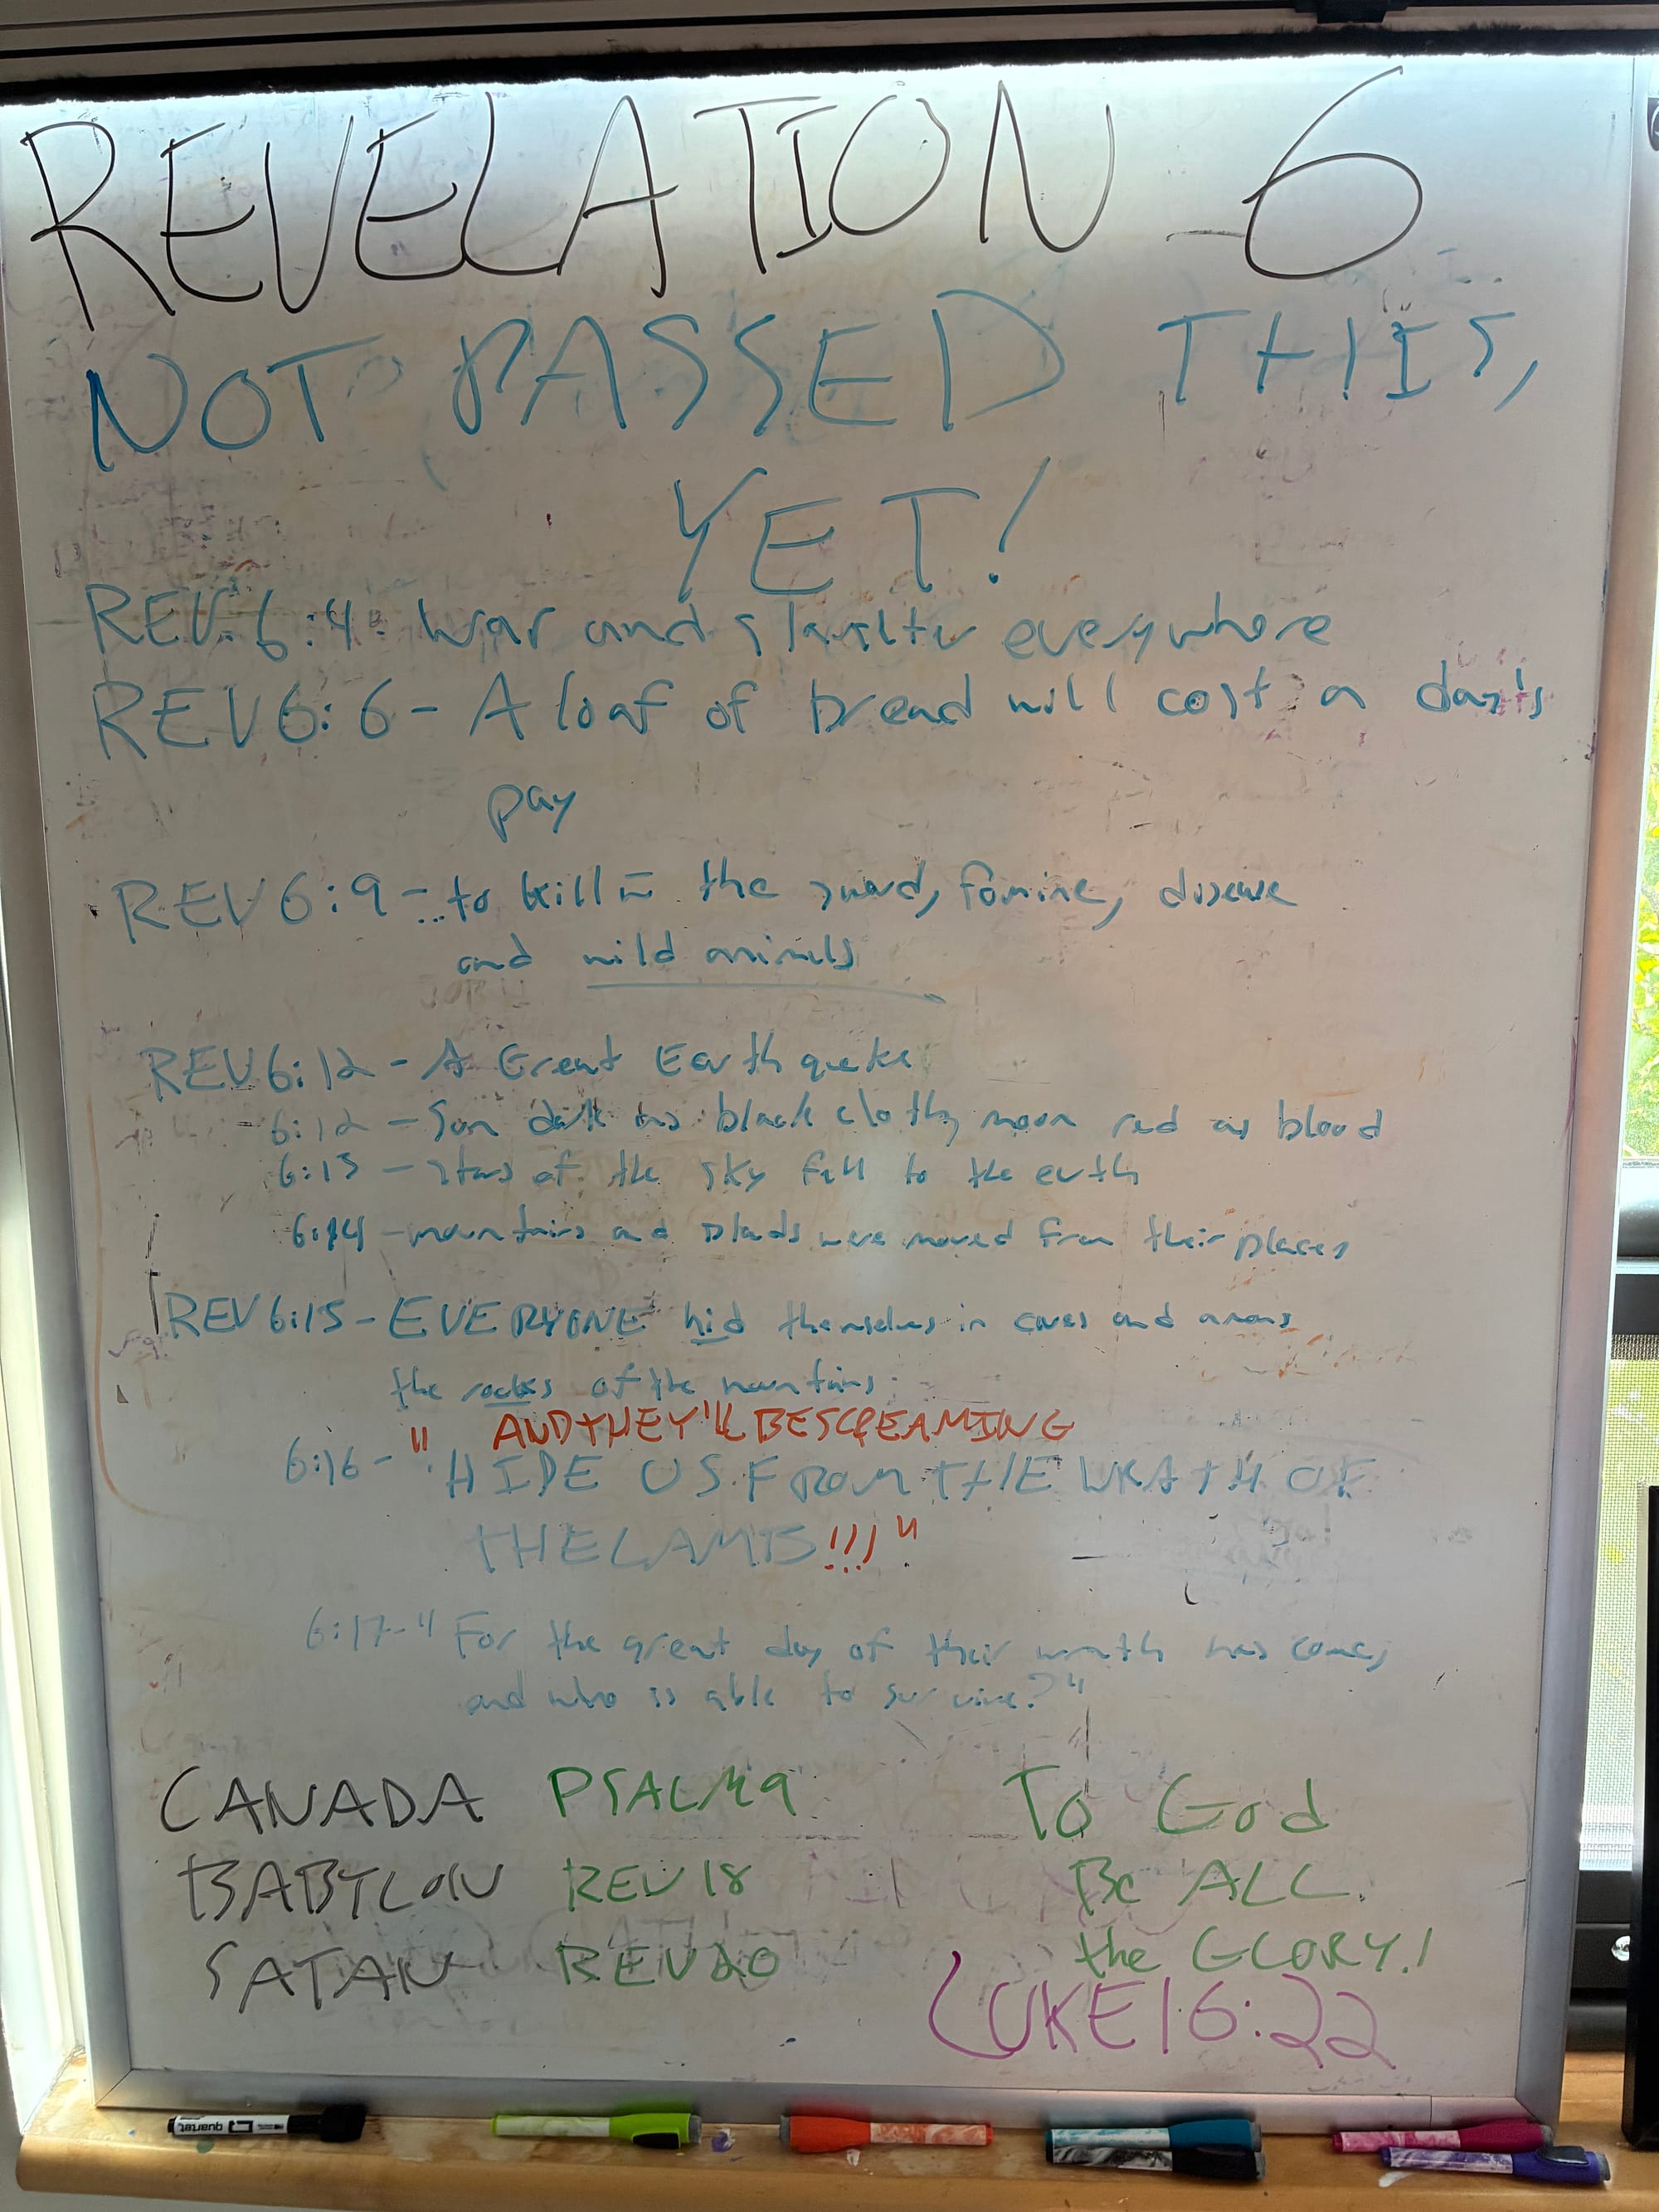 REVELATION 6
NOT PASSED THIS,
YET!
REV. 6:4 - War and everywhere
REV 6:6 - A loaf of bread will cost a day's
pay
REV 6:9 - ... to kill = the sword, famine, disease
and wild animals
REV 6:12 - A Great Earthquake
6:12 - Sun dark as black cloth, moon red as blood
6:13 - Stars of the sky fell to the earth
6:14 - mountains and islands were moved from their places
REV 6:15 - EVERYONE hid themselves in caves and among
the rocks of the mountains
AND THEY'LL BE SCREAMING
6:16 - "HIDE US FROM THE WRATH OF
THE LAMB!!!"
6:17 - "For the great day of their wrath has come,
and who is able to survive?"
CANADA PSALM 9 To God
BABYLON REV 18 Be ALL
SATAN REV 20 the GLORY!
LUKE 16:22
quartet